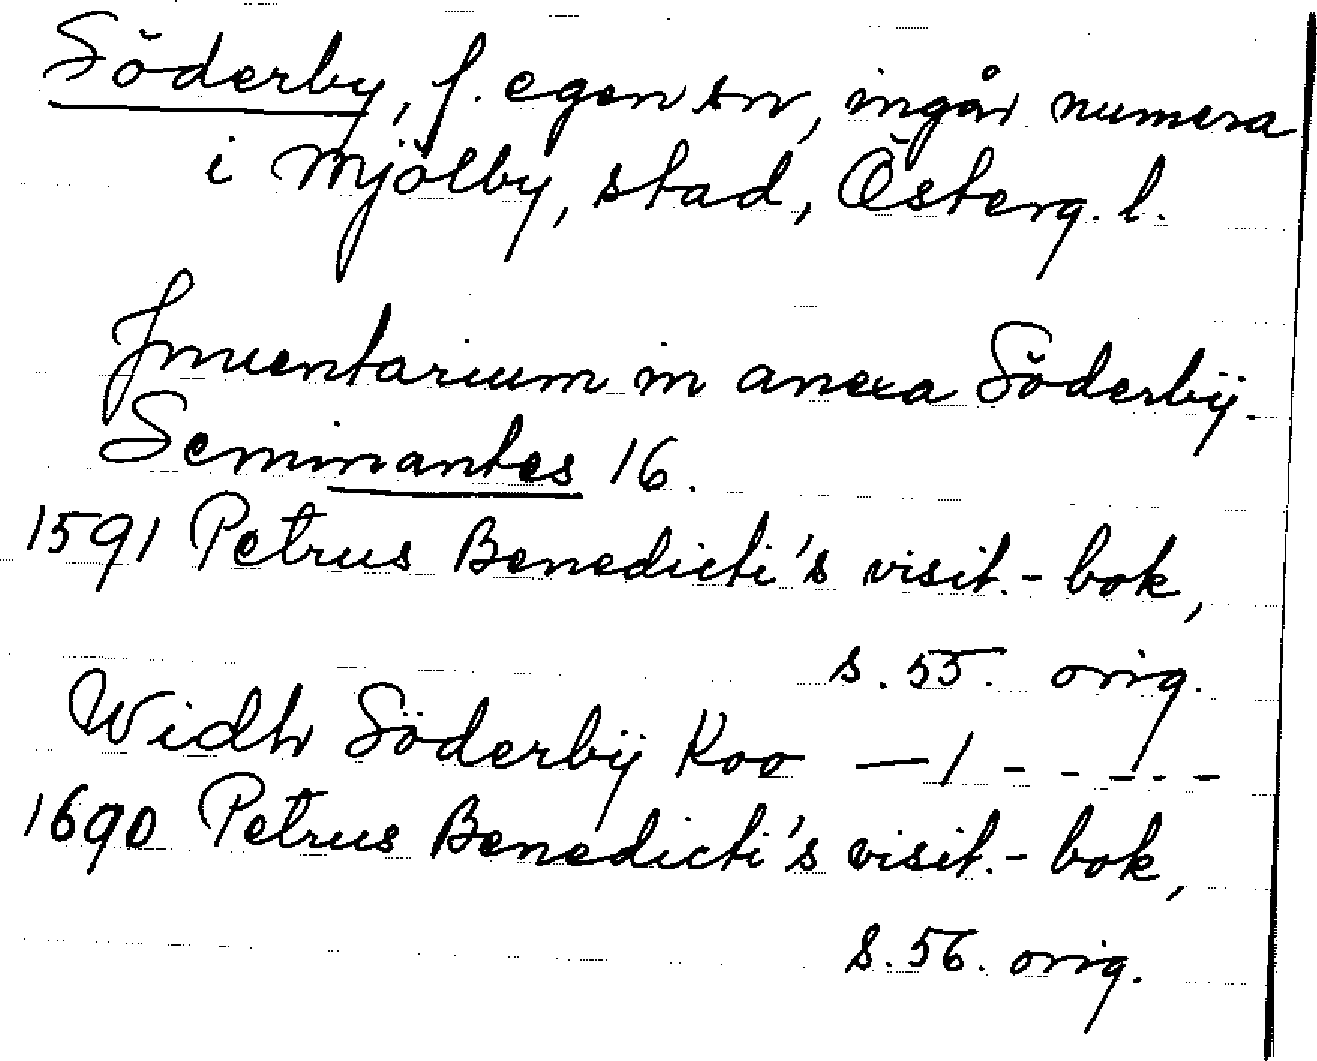 Söderby, f. egen sn, ingår numera
i Mjölby, stad, Österg. l.
Inventarium in anexa Söderbÿ.
Seminantes 16.
1591 Petrus Benedicti's visit.- bok,
s. 55. orig.
Widh Söderbÿ Koo — 1 - - - - -
1690 Petrus Benedicti's visit.- bok,
s. 56. orig.